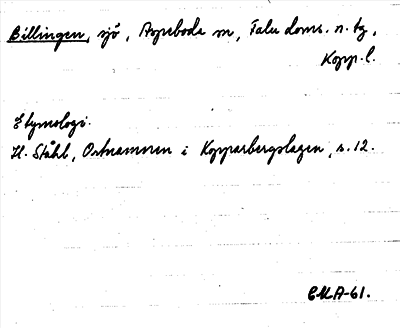 Billingen, sjö, Aspeboda sn, Falu doms. n. tg,
Kopp. l.
Etymologi.
H. Ståhl, Ortnamnen i Kopparbergslagen, s. 12.
EMA-61.